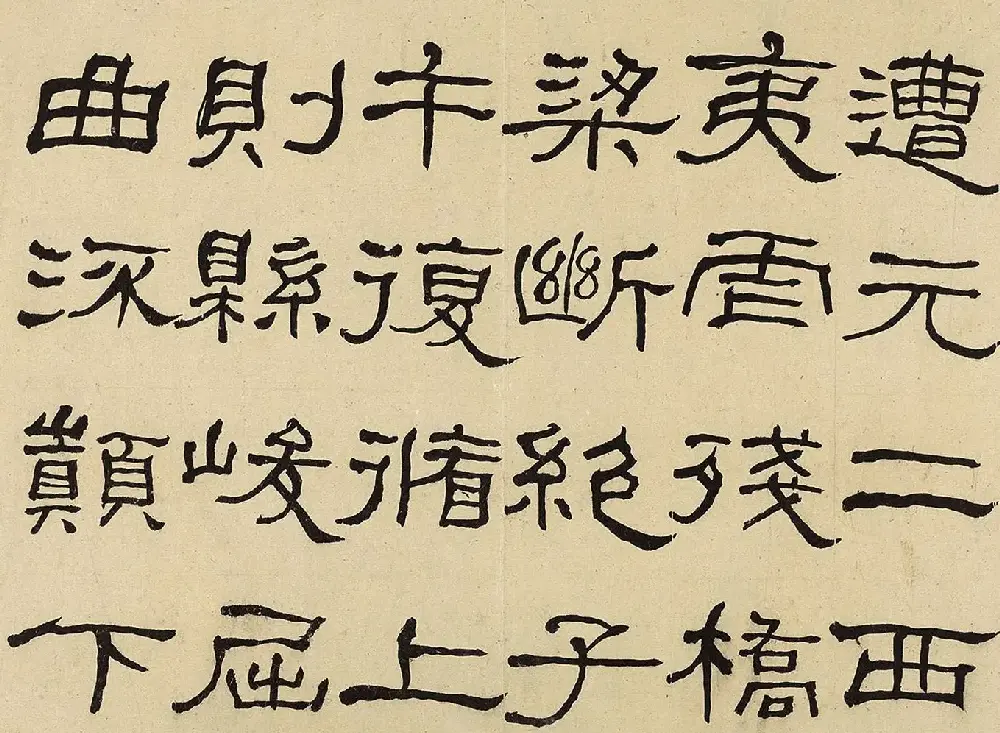 遭元二西
夷虐殘橋
梁斷絶子
午復循上
則縣峻屈
曲流巔下